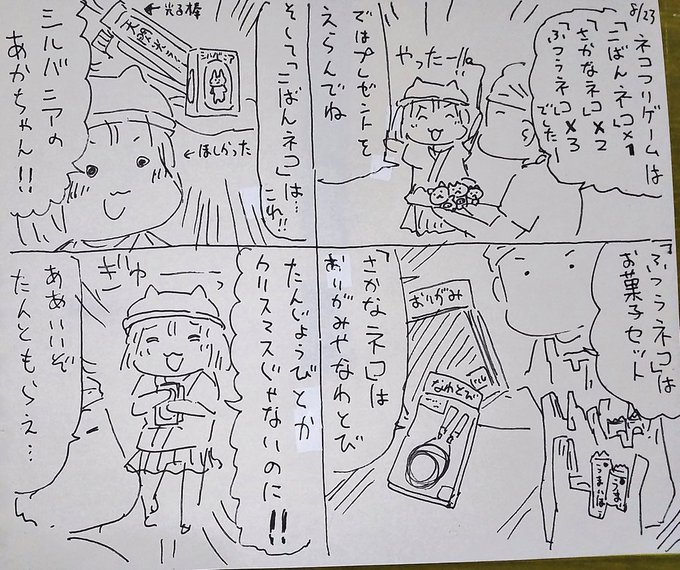 8/23
ネコつりゲームは
「こばんネコ」×1
「さかなネコ」×2
「ふつうネコ」×3
でしたー
やったーっ!!
ではプレゼントを
えらんでね
「ふつうネコ」は
お菓子セット
うまいぼう
うまい
おりがみ
なわとび
「さかなネコ」は
おりがみやなわとび
そして「こばんネコ」は…
これ!!
←光る棒
シルバニア
←ほしかった
シルバニアの
あかちゃん!!
たんじょうびとか
クリスマスじゃないのに!!
ぎゅーっ
ああいいぞ
たんともらえ…